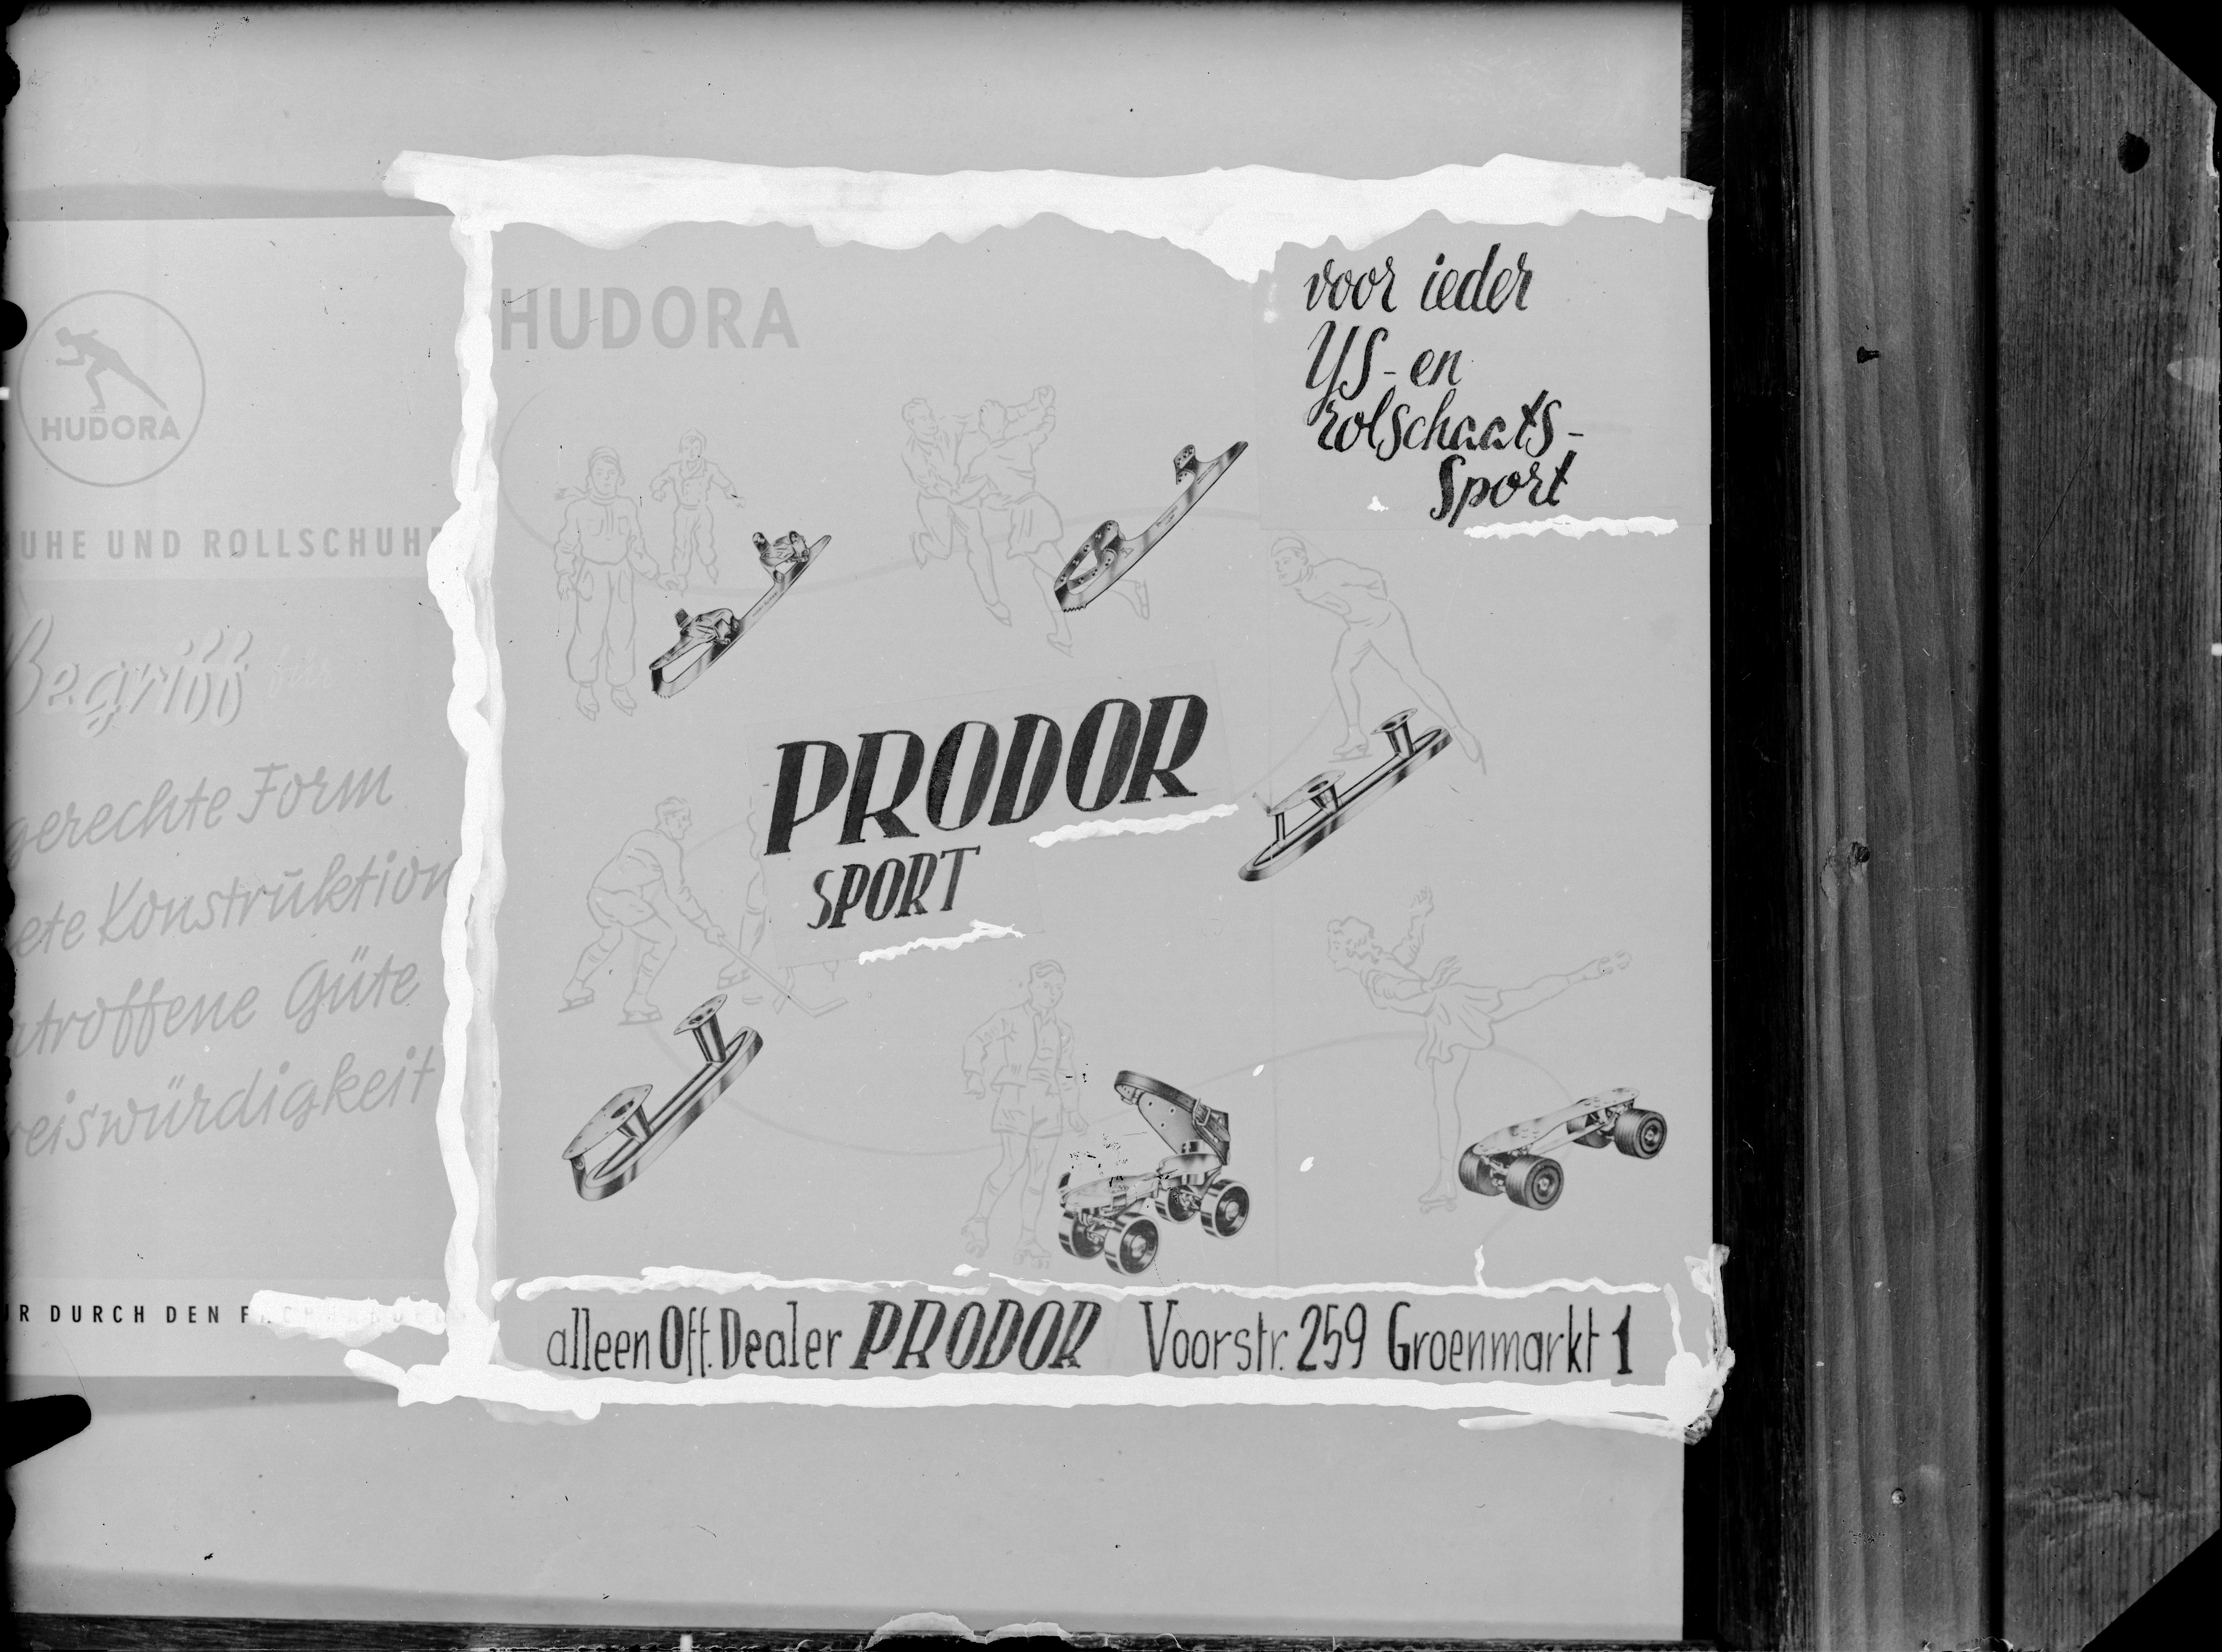 HUDORA
UHE UND ROLLSCHUH
Begriff für
gerechte Form
ete Konstruktion
troffene Güte
eiswürdigkeit
R DURCH DEN
HUDORA
voor ieder
YS-en
rolschaats-
Sport
PRODOR
SPORT
alleen Off. Dealer PRODOR Voorstr. 259 Groenmarkt 1